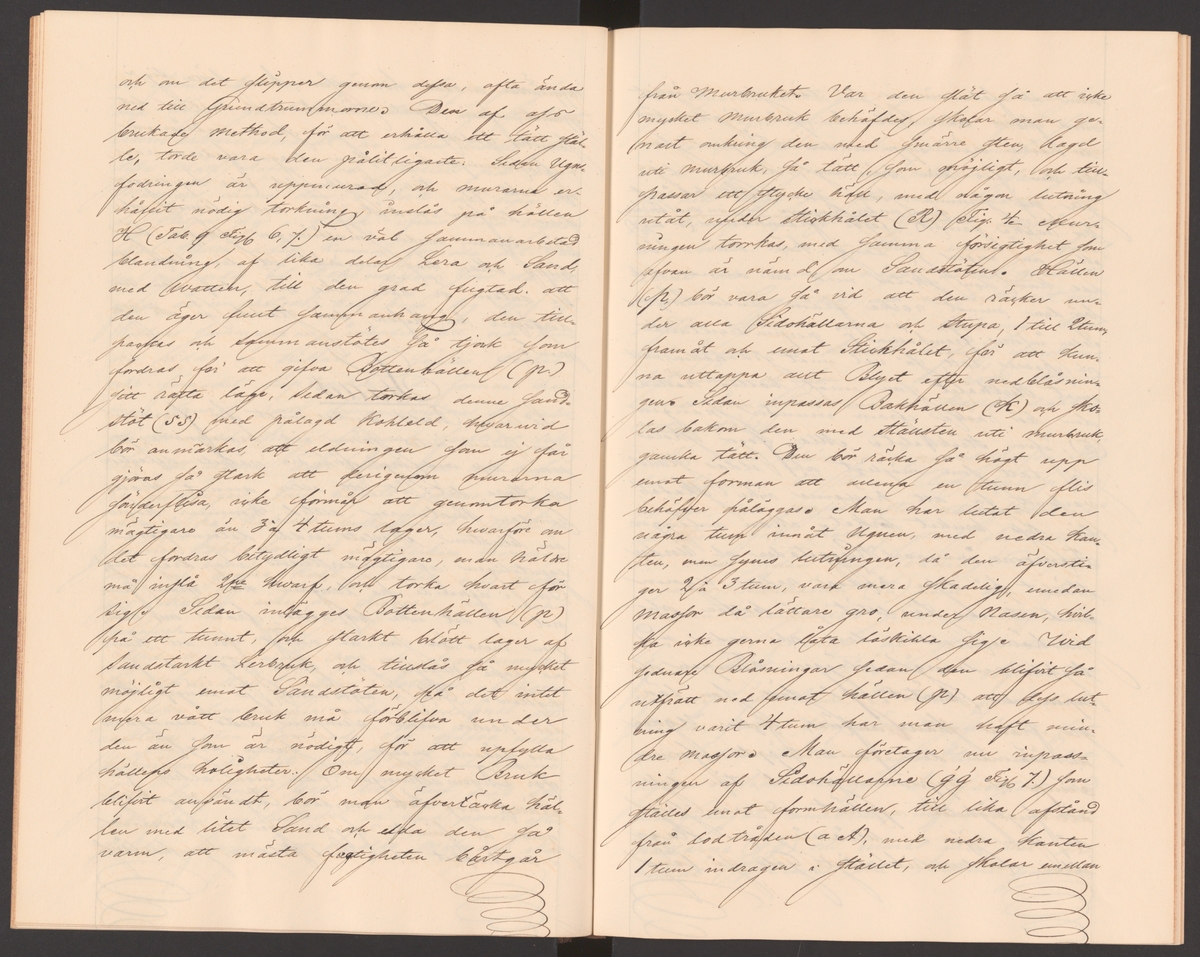 och om det slipper genom dessa, ofta ända
ned till Grundtrummorne. Den af oss
brukade method, för att erhålla ett tätt stäl-
le, torde vara den pålitligaste. Sedan Ugns-
fodringen är uppmurad, och murarna er-
hållit nödig torkning, inslås på hällen
H (Tab. 9 Fig 6, 7.) en väl sammanarbetad
blandning, af lika delar Lera och Sand,
med Watten, till den grad fugtad. att
den äger fullt sammanhang, den till-
packas och sammanstötes så tjock som
fordras för att gifva Bottenhällen (p.)
sitt rätta läge, sedan torkas denne Sand-
stöt (SS) med pålagd Kohleld, hwarwid
bör anmärkas, att eldningen som ej får
gjöras så stark att murarna
sönderflisa, icke förmår att genomtorka
mägtigare än 3 à 4 tums lager, hwarföre om
det fordras betydligt mägtigare, man hällre
må inslå 2ne hwarf, och torka hwart för
sig. Sedan inlägges Bottenhällen (p)
på ett tunnt, och starkt blött lager af
Sandstarkt Lerbruk, och tillslås så mycket
möjligt emot Sandstöten, på det intet
mera vått bruk må förblifva under
den än som är nödigt, för att upfylla
hällens holigheter. Om mycket Bruk
blifvit användt, bör man äfvertäcka häl-
len med litet Sand och elda den så
varm, att mästa fugtigheten bortgår
från Murbruket. Var den slät så att icke
mycket murbruk behöfdes, skolar man ge-
nast omkring den med smärre sten, lagd
uti murbruk, så tätt, som möjligt, och till-
passar ett stycke häll, med någon lutning
utåt, under Stickhålet (R) Fig. 4. Mur-
ningen torrkas, med samma försigtighet som
ofvan är nämd om Sandstöten. Hällen
(p.) bör vara så vid att den räcker un-
der alla Sidohällarna och Stupa, 1 till 2 tum,
framåt och emot Stickhålet, för att kun-
na uttappa allt Blyet efter nedblåsnin-
gen. Sedan inpassas Bakhällen (K) och sko-
las bakom den med Hällsten uti murbruk
ganska tätt. Den bör räcka så högt upp
emot forman att allena en tunn flis
behöfver påläggas. Man har lutat den
några tum innåt Ugnen, med nedra kan-
ten, men synes lutningen, då den äfversti-
ger 2 à 3 tum, vara mera skadelig, emedan
massor då lättare gro, under Nasen, hvil-
ka icke gerna låta låskihla sig. Wid
sednare Blåsningar sedan den blifvit så
utfrätt ned emot hällen (p) att dess lut-
ning varit 4 tum har man haft min-
dre massor. Man företager nu inpass-
ningen af Sidohällarne (ǵǵ Fig 7.) som
ställes emot formhällen, till lika afstånd
från lodtråden (a A), med nedra kanten
1 tum indragen i stället, och skolar emellan